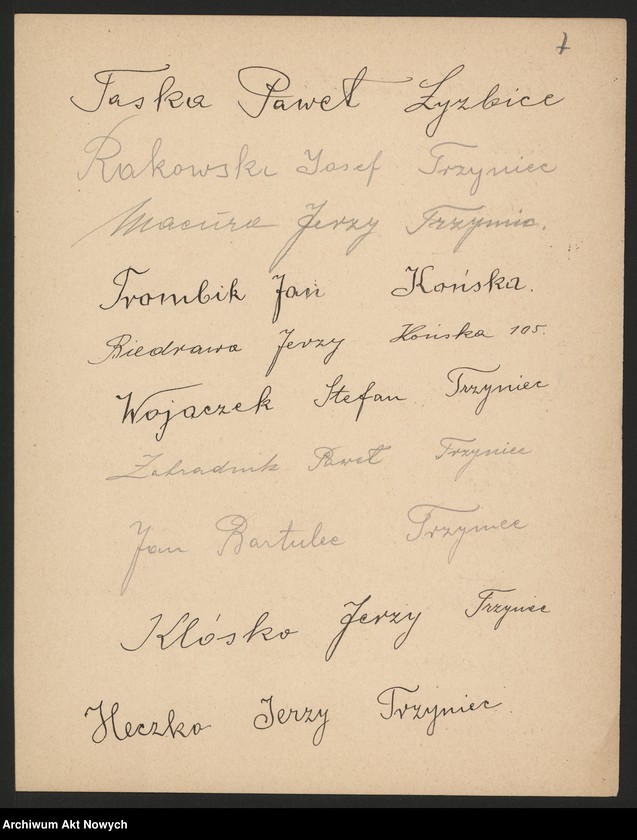 7
Taska Paweł Łyzbice
Rakowski Josef Trzyniec
Macura Jerzy Trzyniec.
Trombik Jan Końska.
Biedrawa Jerzy Końska 105.
Wojaczek Stefan Trzyniec
Zahradnik Paweł Trzyniec
Jan Bartulec Trzyniec
Kłósko Jerzy Trzyniec
Heczko Jerzy Trzyniec
Archiwum Akt Nowych